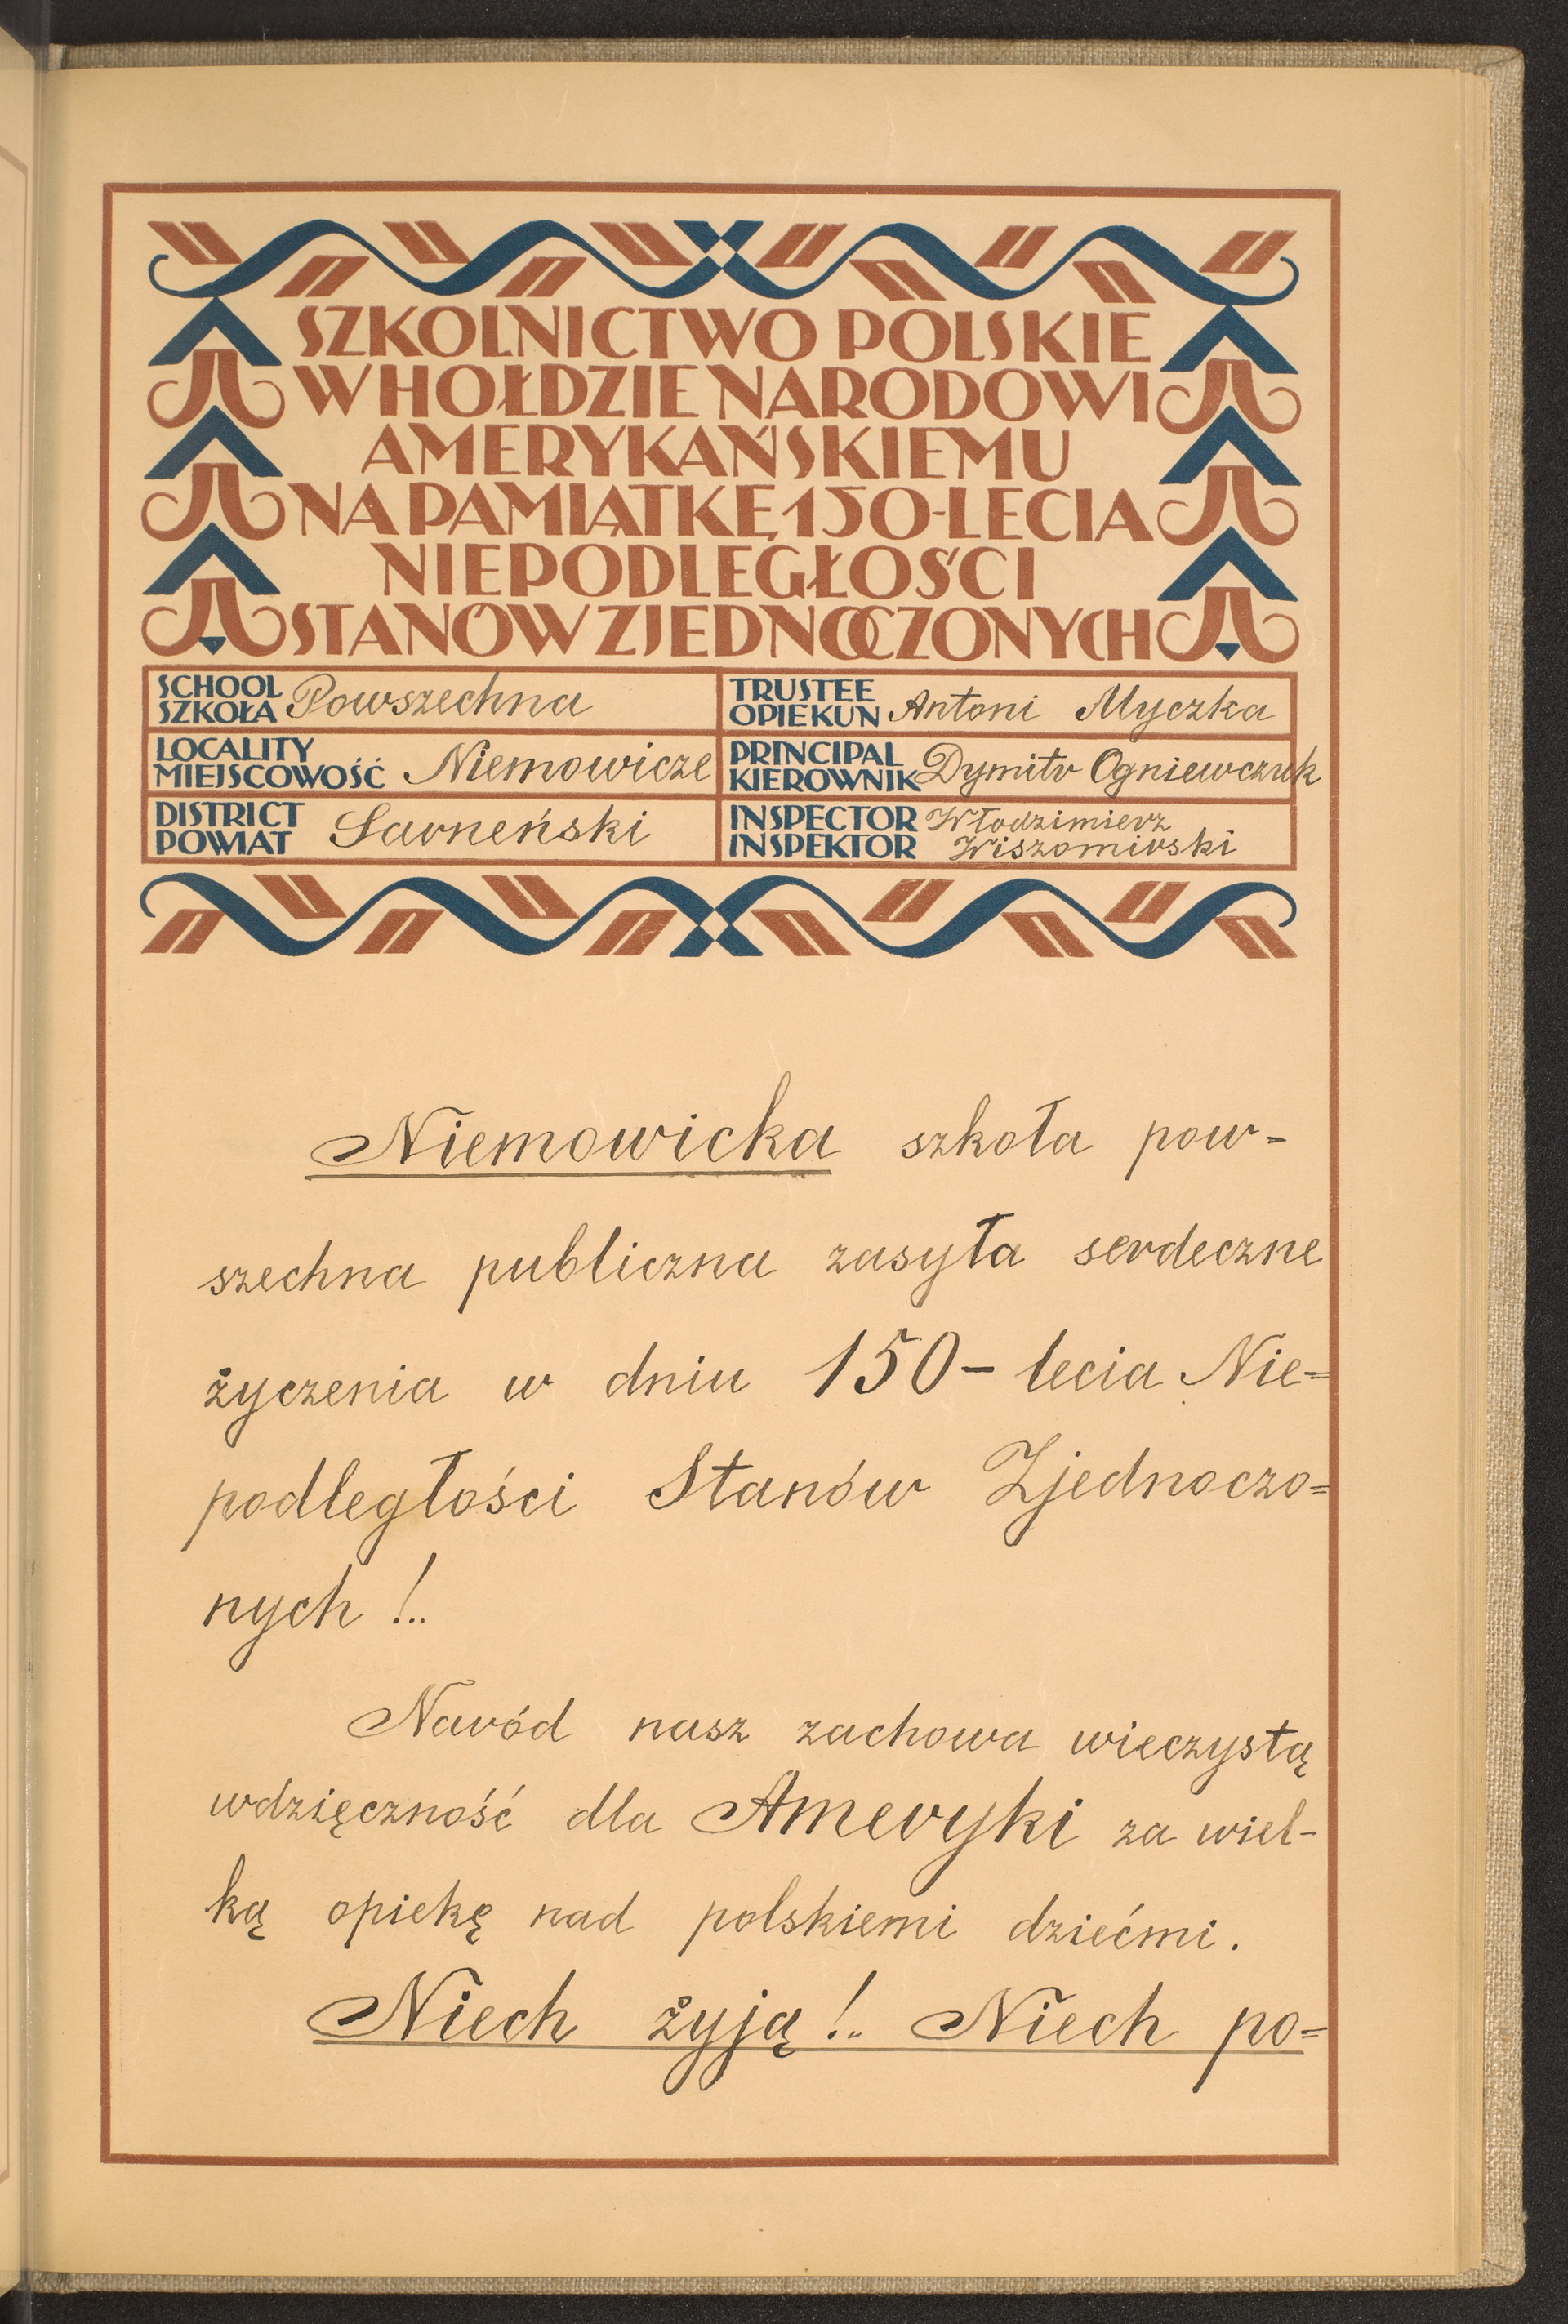 SZKOLNICTWO POLSKIE
W HOŁDZIE NARODOWI
AMERYKAŃSKIEMU
NA PAMIĄTKĘ 150-LECIA
NIEPODLEGŁOŚCI
STANÓW ZJEDNOCZONYCH
SCHOOL
SZKOŁA Powszechna
TRUSTEE
OPIEKUN Antoni Myczka
LOCALITY
MIEJSCOWOŚĆ Niemowicze
PRINCIPAL
KIEROWNIK Dymitr Ogniewczuk
DISTRICT
POWIAT Sarneński
INSPECTOR Włodzimierz
INSPEKTOR Wiszomirski
Niemowicka szkoła pow-
szechna publiczna zasyła serdeczne
życzenia w dniu 150-lecia Nie=
podległości Stanów Zjednoczo=
nych !..
Naród nasz zachowa wieczystą
wdzięczność dla Ameryki za wiel-
ką opiekę nad polskiemi dziećmi.
Niech żyją !.. Niech po=